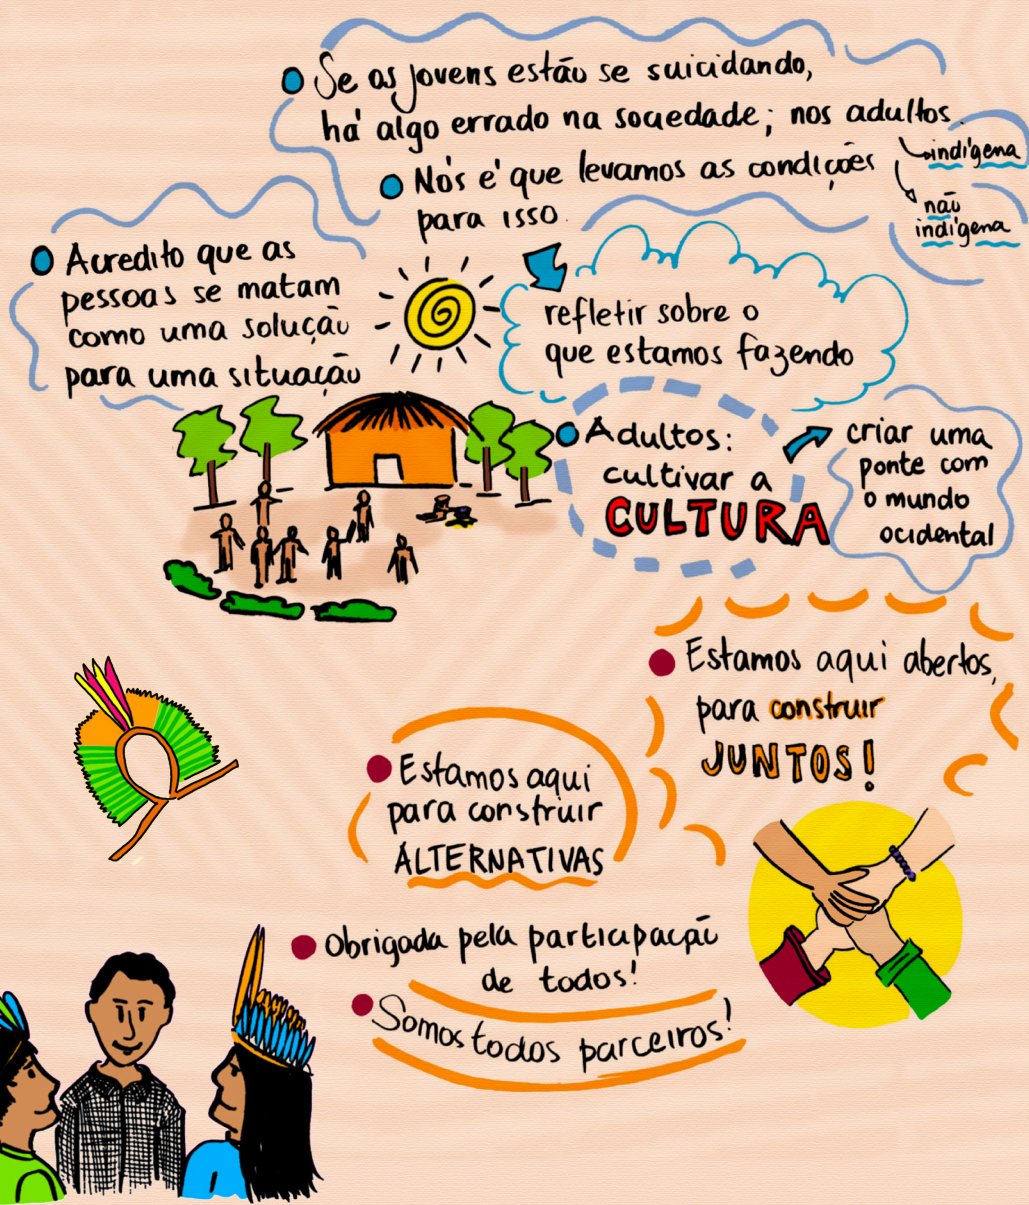 Se os jovens estão se suicidando,
há algo errado na sociedade; nos adultos.
indígena
não
indígena
Nós é que levamos as condições
para isso.
Acredito que as
pessoas se matam
como uma solução
para uma situação
refletir sobre o
que estamos fazendo
Adultos:
cultivar a
CULTURA
criar uma
ponte com
o mundo
ocidental
Estamos aqui abertos,
para construir
JUNTOS!
Estamos aqui
para construir
ALTERNATIVAS
Obrigada pela participação
de todos!
Somos todos parceiros!